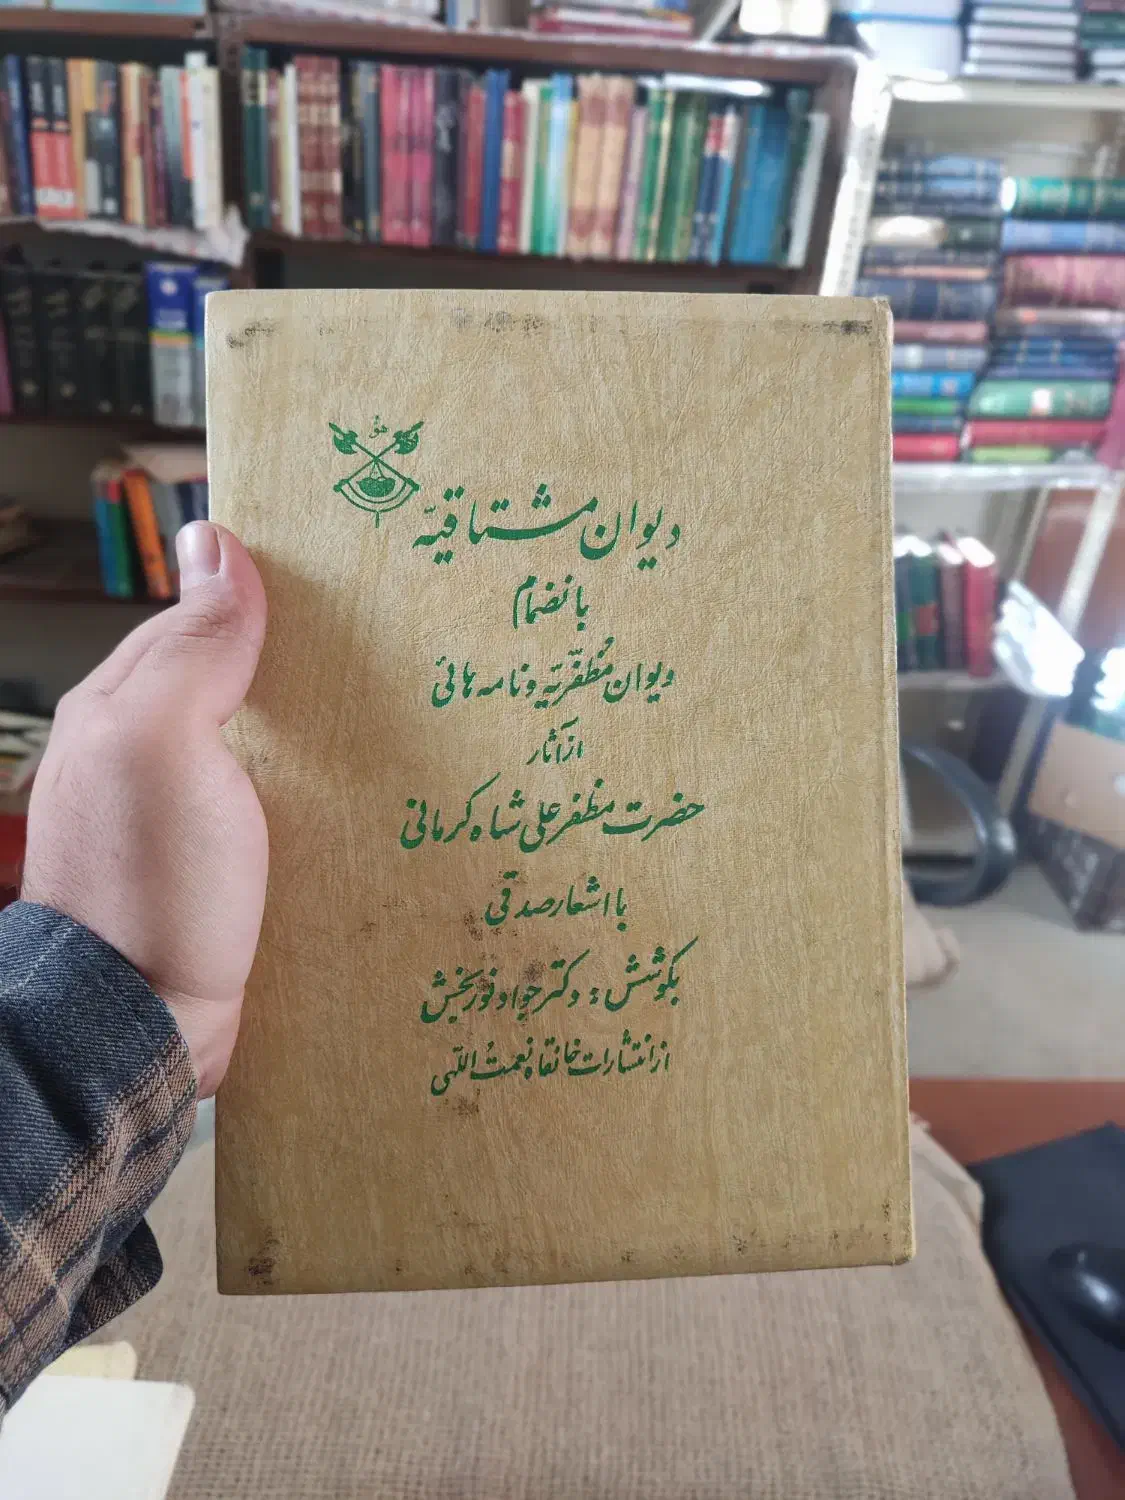 هو
دیوان مشتاقیّه
بانضمام
دیوان مُظفّریّه و نامه هائی
از آثار
حضرت مظفر علی شاه کرمانی
با اشعار صدقی
بکوشش : دکتر جواد نوربخش
از انتشارات خانقاه نعمتُ اللّهی